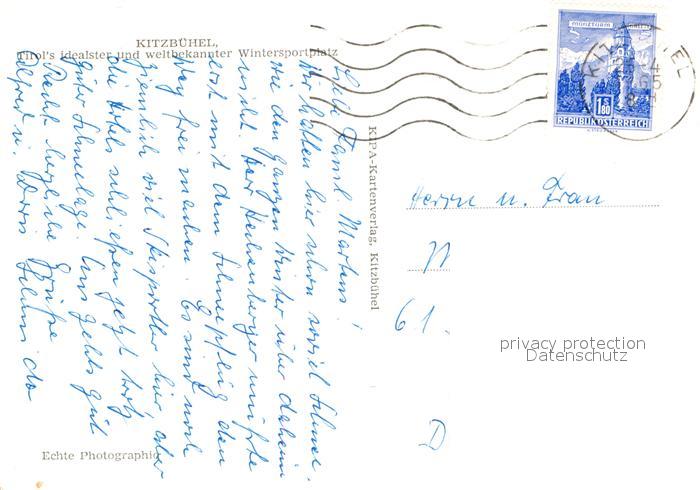 KITZBÜHEL,
Tirol's idealster und weltbekannter Wintersportplatz
MÜNZTURM
1 S 80
REPUBLIK ÖSTERREICH
KITZBÜHEL
Liebe Famil. Martens!
Wir hatten hier schon soviel Schnee.
wie den ganzen Winter über daheim
nicht. Herr mußte
erst mit dem Schneepflug den
Weg frei machen. Es sind noch
ziemlich viel Skisportler hier aber
die Hotel schließen jetzt trotz
guter Schneelage. Uns gehts gut
Recht herzliche Grüße
Alfred u. Doris
KIPA-Kartenverlag, Kitzbühel
Herrn u. Frau
61
D
privacy protection
Datenschutz
Echte Photographie